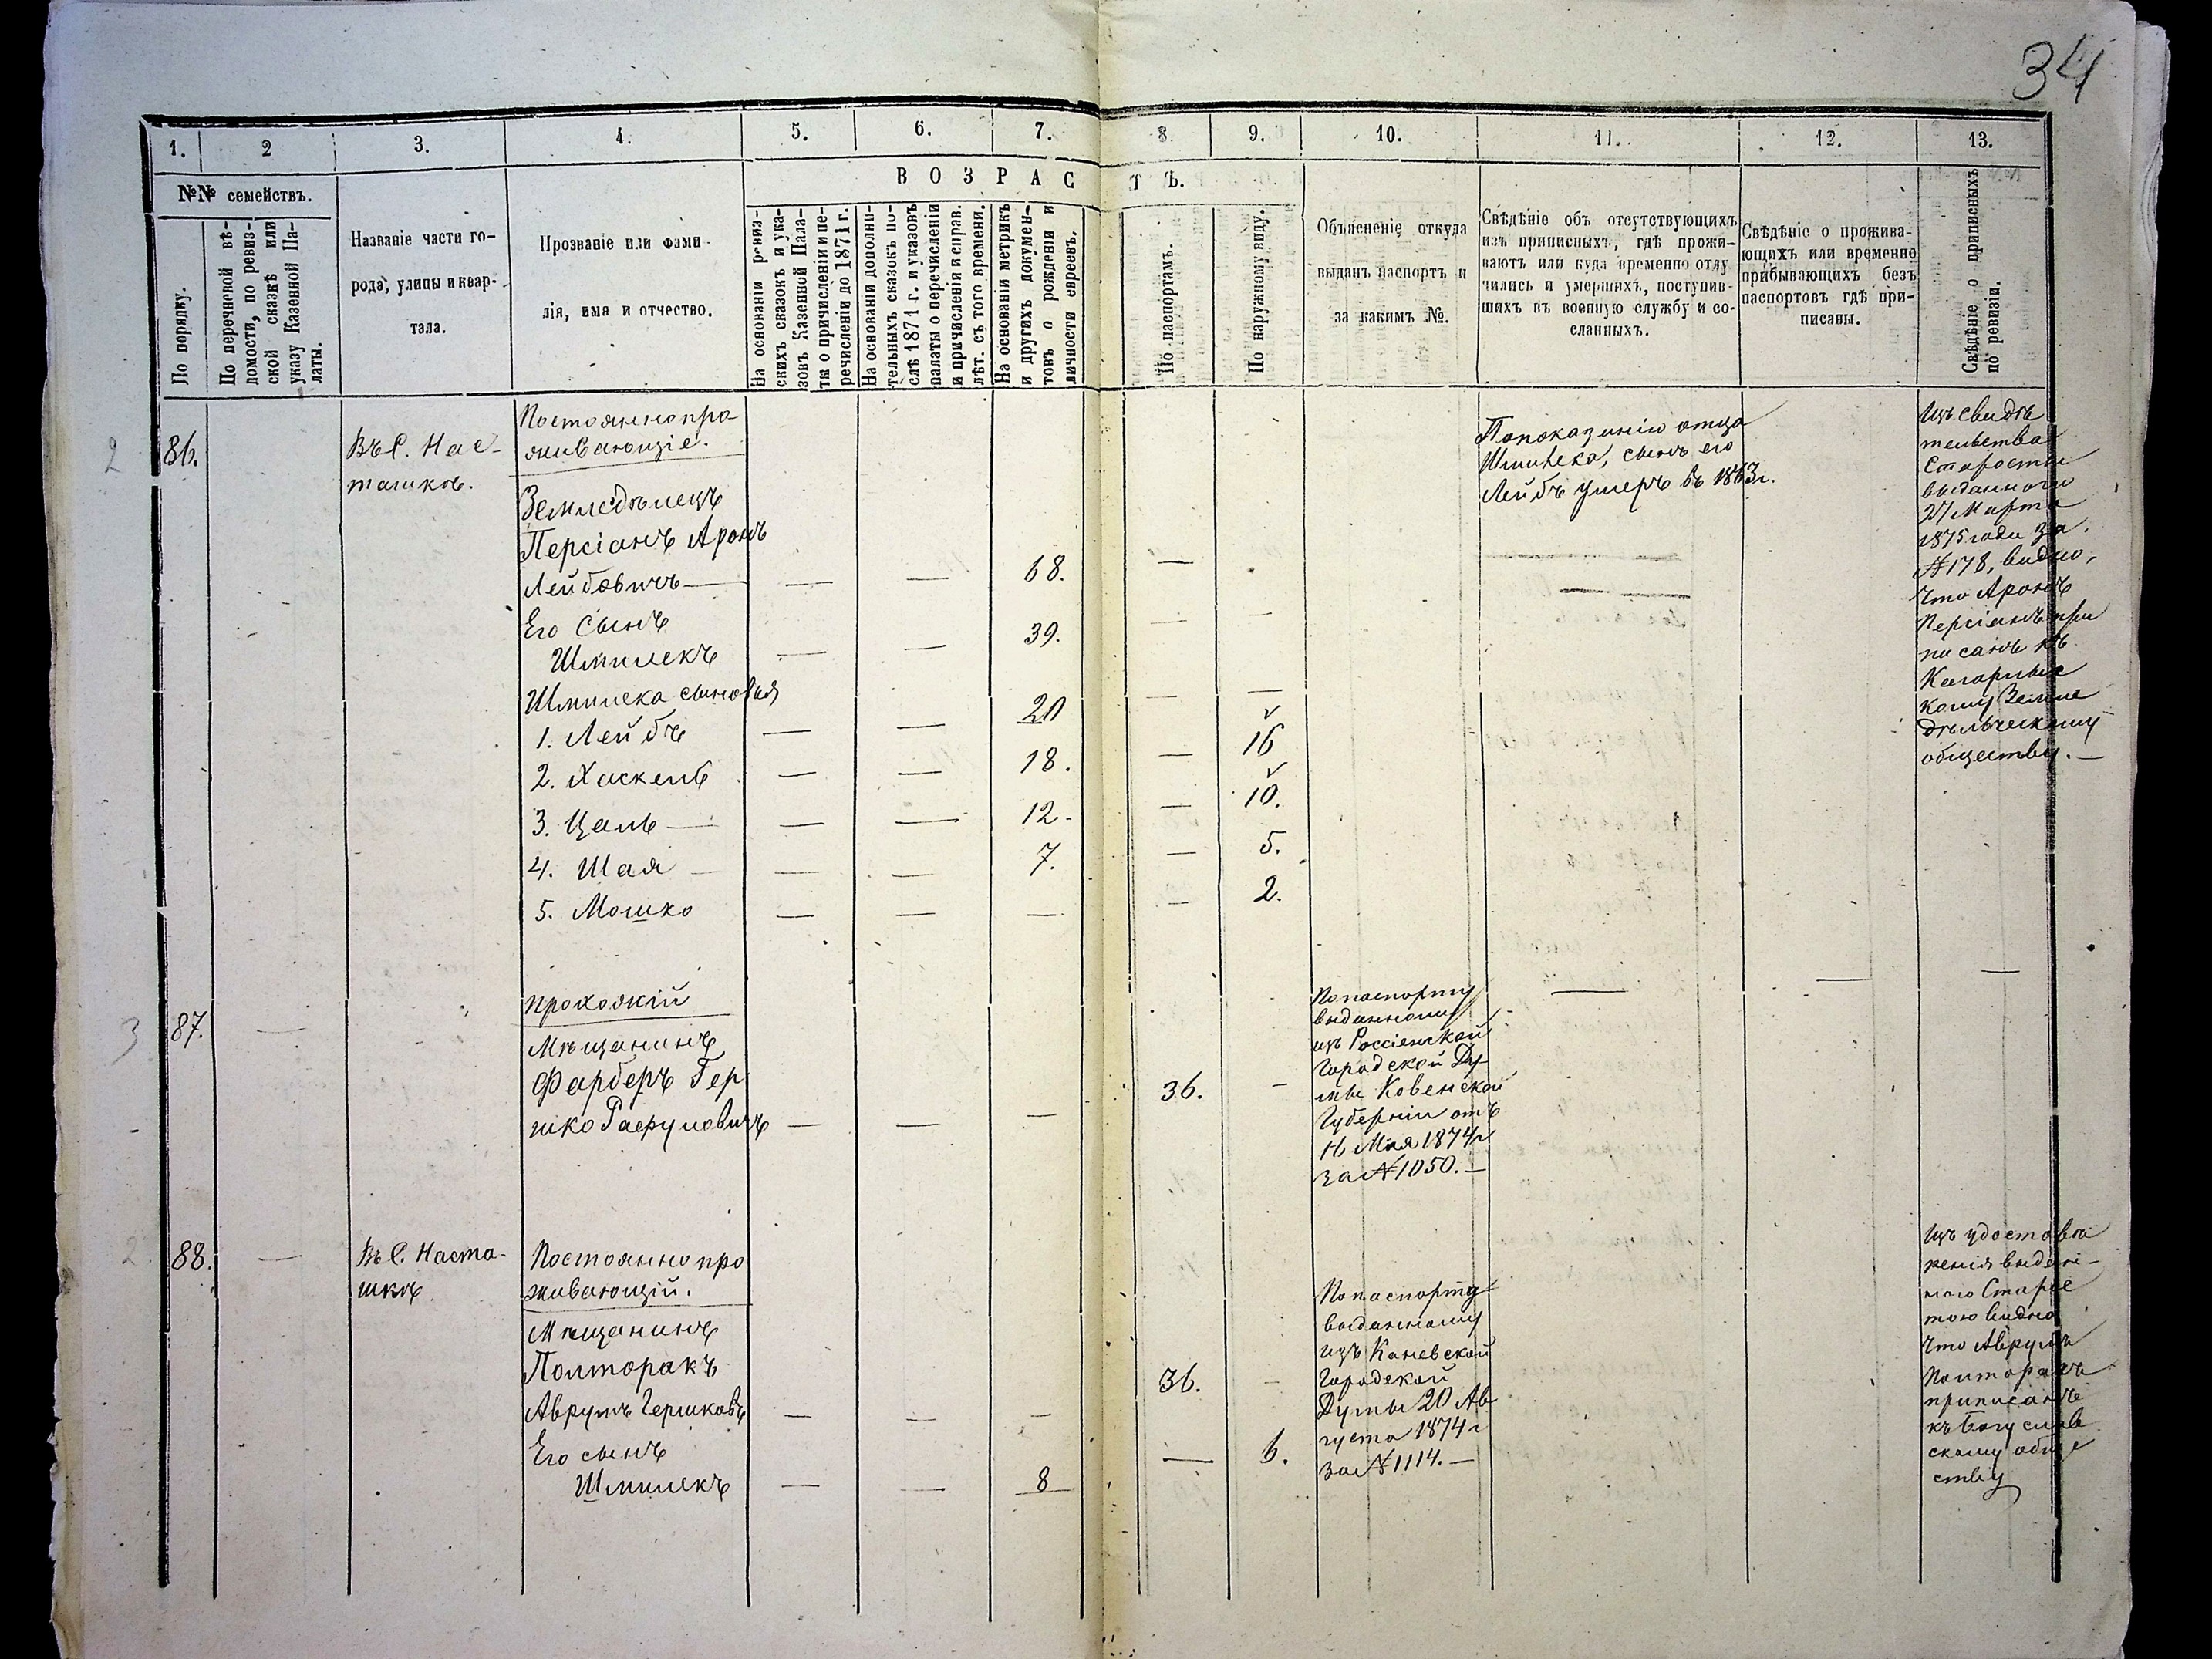 34
1. 2 3. 4. 5. 6. 7. 8. 9. 10. 11. 12. 13.
№№ семействъ.
ВОЗРАСТЪ.
По порядку.
По перечневой вѣ-
домости, по ревиз-
ской сказкѣ или
указу Казенной Па-
латы.
Названіе части го-
рода, улицы и квар-
тала.
Прозваніе или фами-
лія, имя и отчество.
На основаніи ревиз-
скихъ сказокъ и ука-
зовъ Казенной Пала-
ты о причисленіи и пе-
речисленіи до 1871 г.
На основаніи дополни-
тельныхъ сказокъ по-
слѣ 1871 г. и указовъ
палаты о перечисленіи
и причисленіи и справ.
лѣт. съ того времени.
На основаніи метрикъ
и другихъ докумен-
товъ о рожденіи и
личности евреевъ.
По паспортамъ.
По наружному виду.
Объясненіе откуда
выданъ паспортъ и
за какимъ №.
Свѣдѣніе объ отсутствующихъ
изъ приписныхъ, гдѣ прожи-
ваютъ или куда временно отлу
чились и умершихъ, поступив-
шихъ въ военную службу и со-
сланныхъ.
Свѣдѣніе о прожива-
ющихъ или временно
прибывающихъ безъ
паспортовъ гдѣ при-
писаны.
Свѣдѣніе о приписныхъ
по ревизіи.
2
86.
Въ С. Нас-
ташкѣ.
Постояннопро-
живающіе.
Земледѣлецъ
Персіанъ Аронъ
Лейбовичъ — — — 68. —
Его Сынъ
Шмилекъ — — 39. — —
Шмилека сыновья
1. Лейбъ — — 20 — —
2. Хаскель — — 18. — 16
3. Цаль — — — 12. — 10.
4. Шая — — — 7. — 5.
5. Мошко — — — — 2.
Попоказанію отца
Шмилека, сынъ его
Лейбъ умеръ въ 1863г.
Изъ свидѣ
тельства
Старосты
выданного
27 Марта
1875 года за
№178, видно,
что Аронъ
Персіанъ при
писанъ къ
Кагарлыс
кому Земле
дѣльческому
обществу. —
3
87. —
прохожій
Мѣщанинъ
Фарберъ Гер
шко — — — 36. —
Попаспорту
выданному
изъ Россіенской
Городской Ду-
мы Ковенской
Губерніи отъ
16 Мая 1874г
за №1050. —
— — —
2
88. —
Въ С. Наста-
шкѣ
Постояннопро
живающій.
Мѣщанинъ
Полторакъ
Аврумъ Гершковъ — — — 36. —
Его сынъ
Шмилекъ — — 8 — 6.
Попаспорту
выданному
изъ Каневской
Городской
Думы 20 Ав
густа 1874г
за №1114. —
Изъ удостовѣ
ренія выдан-
ного Старос
тою видно
что Аврумъ
Полторакъ
приписанъ
къ Богуслав
скому обще
ству